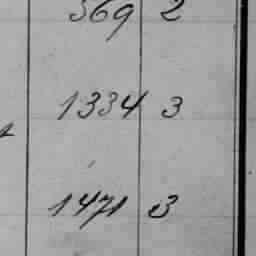 369 2
1334 3
1471 3